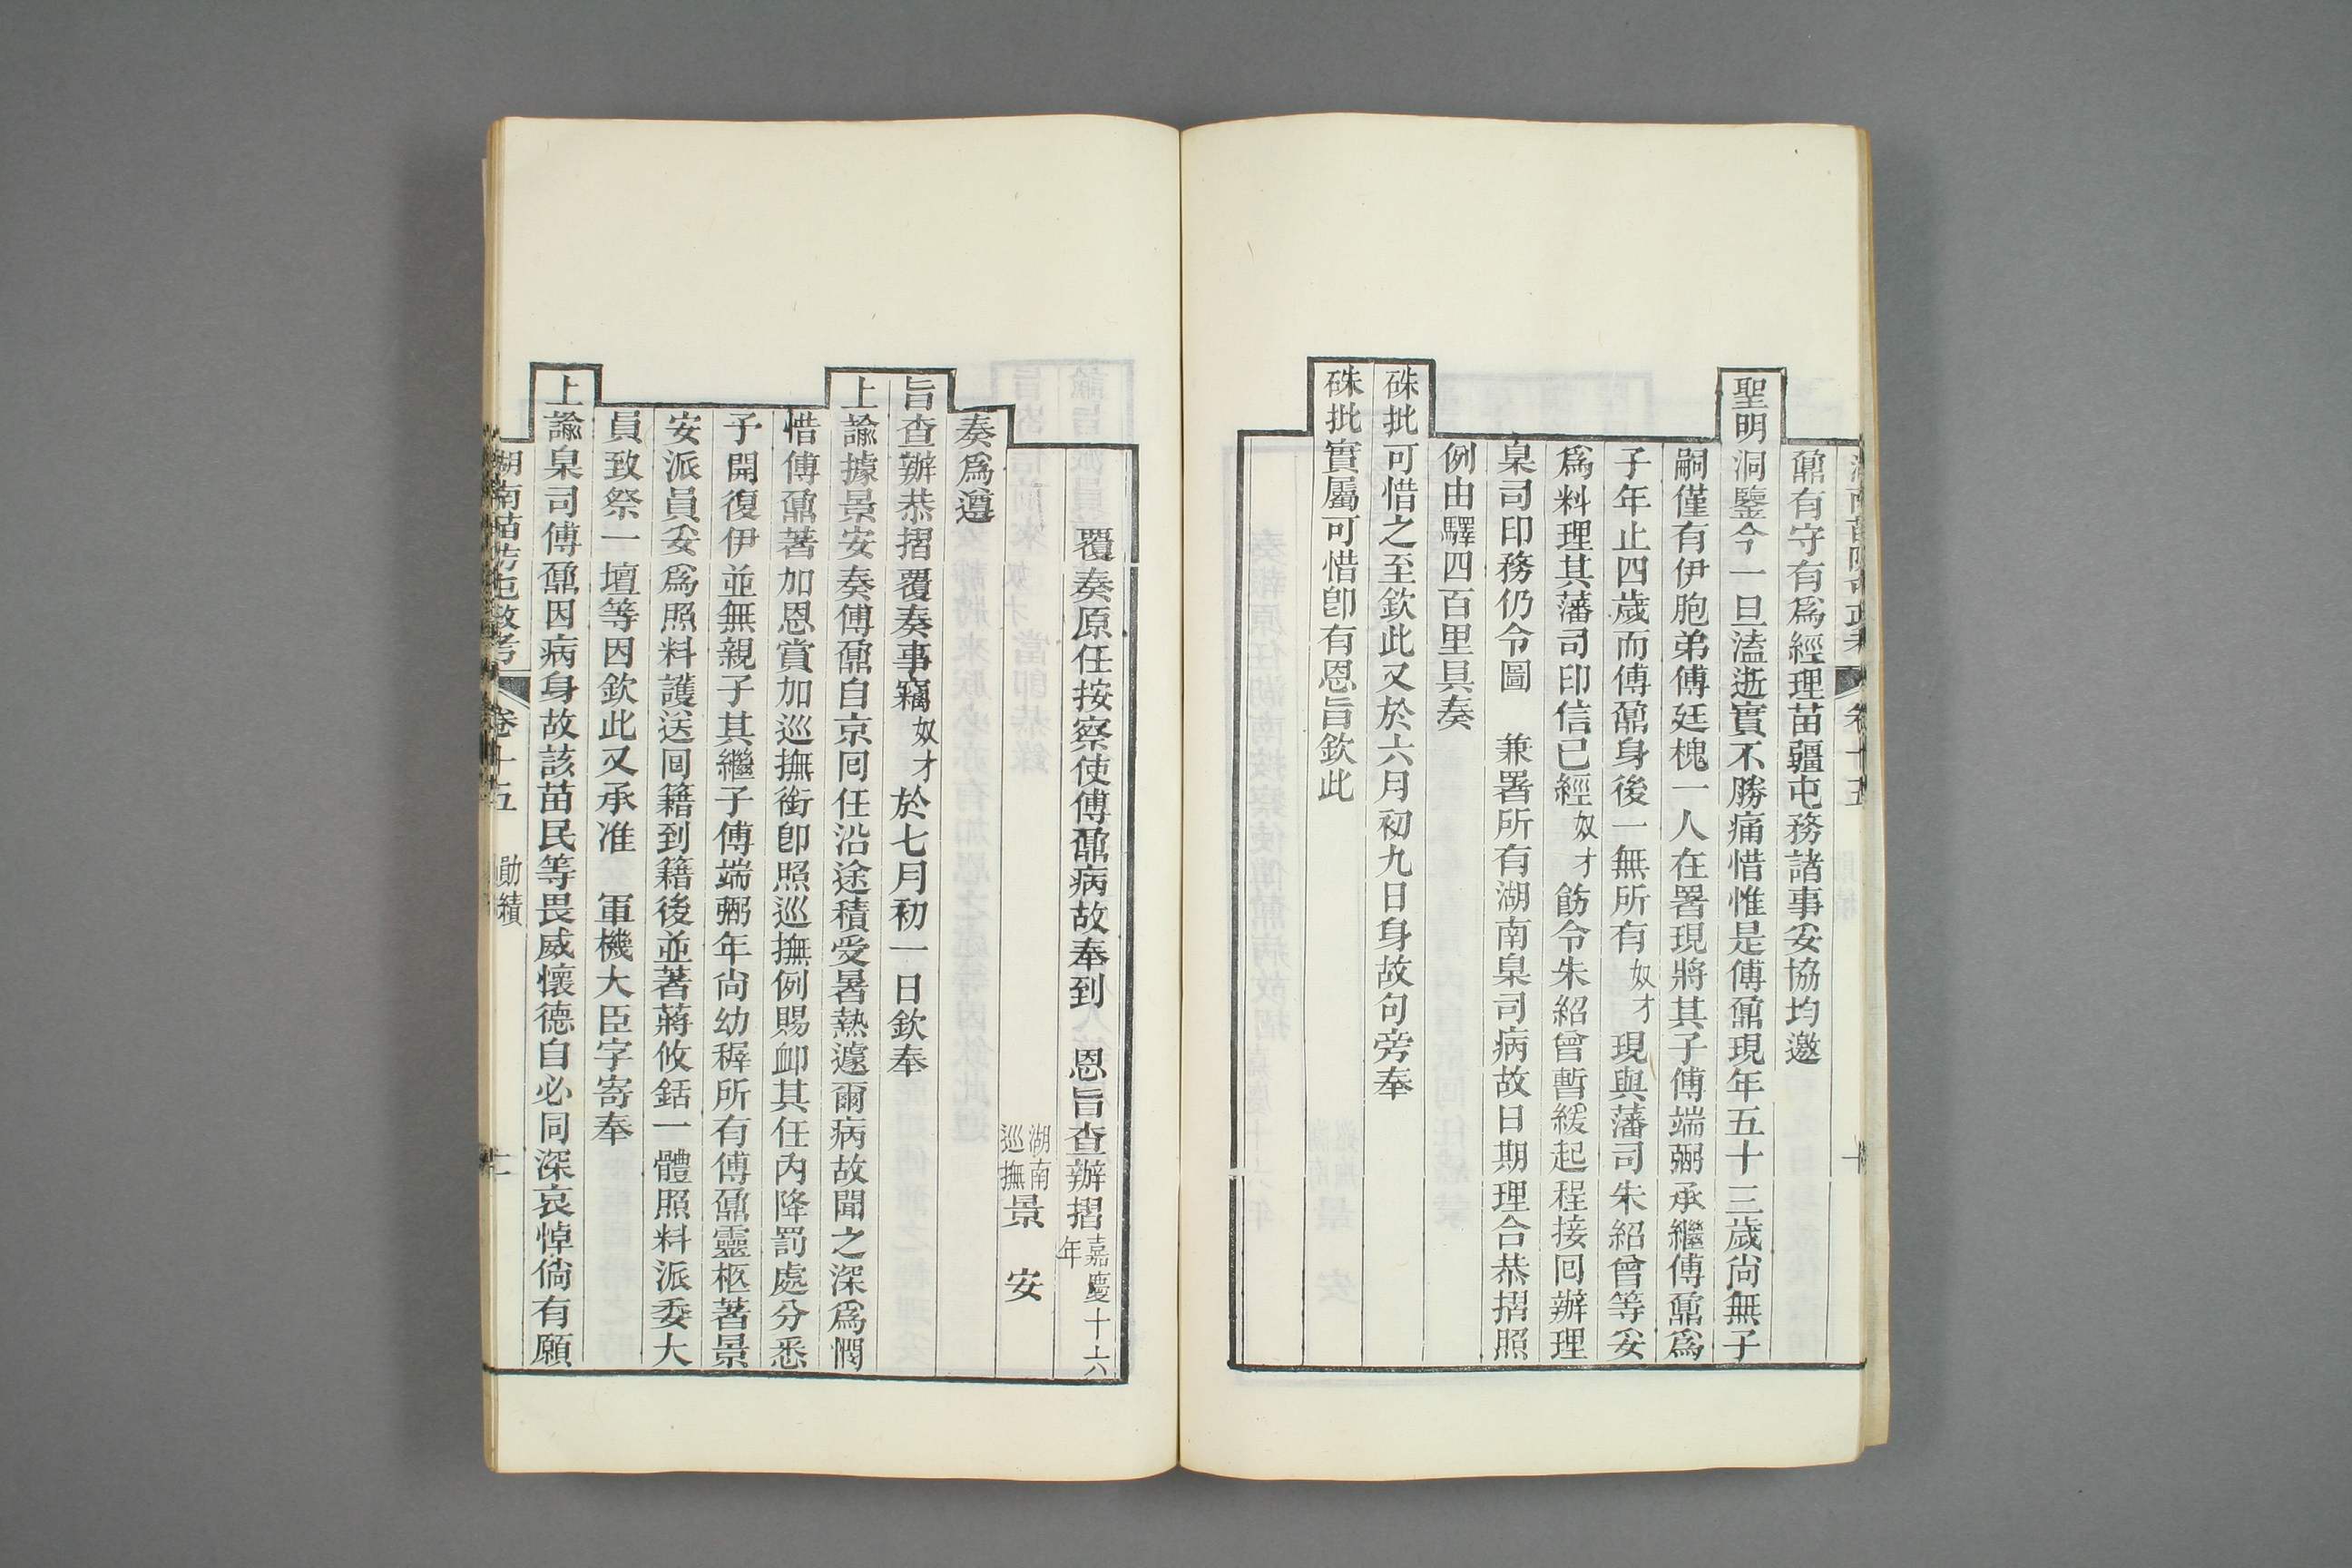 鼐有守有爲經理苗疆屯務諸事妥協均邀
聖明洞鑒今一旦溘逝實不勝痛惜惟是傅鼐現年五十三歲尙無子
嗣僅有伊胞弟傅廷槐一人在署現將其子傅端弼承繼傅鼐爲
子年止四歲而傅鼐身後一無所有奴才現與藩司朱紹曾等妥
爲料理其藩司印信已經奴才飭令朱紹曾暫緩起程接囘辦理
臬司印務仍令圖　兼署所有湖南臬司病故日期理合恭摺照
例由驛四百里具奏
硃批可惜之至欽此又於六月初九日身故句旁奉
硃批實屬可惜卽有恩旨欽此
覆奏原任按察使傅鼐病故奉到　恩旨查辦摺嘉慶十六年
湖南巡撫景　安
奏爲遵
旨查辦恭摺覆奏事竊奴才於七月初一日欽奉
上諭據景安奏傅鼐自京囘任沿途積受暑熱遽爾病故聞之深爲憫
惜傅鼐著加恩賞加巡撫銜卽照巡撫例賜卹其任內降罰處分悉
子開復伊並無親子其繼子傅端弼年尙幼穉所有傅鼐靈柩著景
安派員妥爲照料護送囘籍到籍後並著蔣攸銛一體照料派委大
員致祭一壇等因欽此又承准　軍機大臣字寄奉
上諭臬司傅鼐因病身故該苗民等畏威懷德自必同深哀悼倘有願
湖南苗防屯政考　卷十五　勛績　二